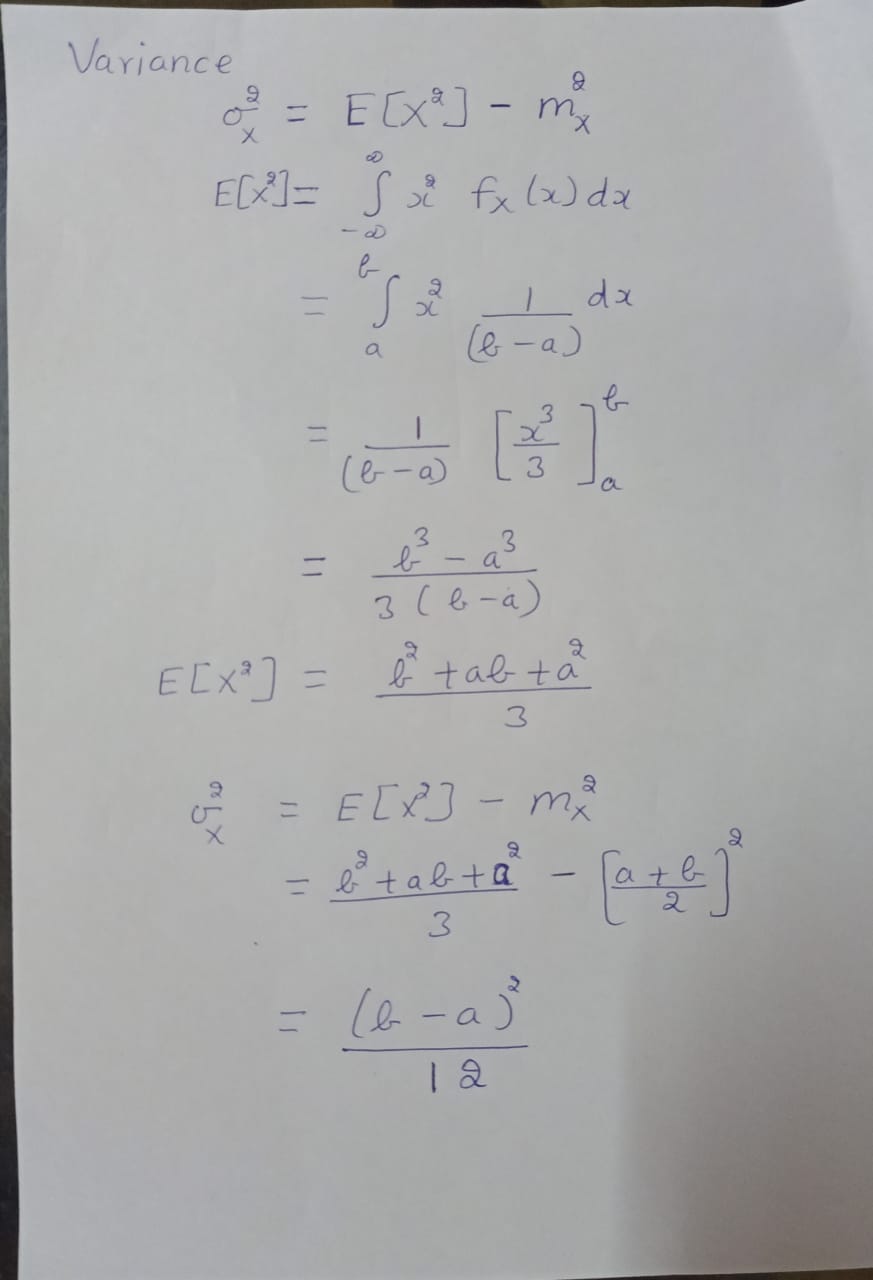 Variance
σ_x^2 = E[X^2] - m_x^2
E[X^2] = ∫_{-∞}^{∞} x^2 f_X(x) dx
= ∫_a^b x^2 1/(b-a) dx
= 1/(b-a) [x^3/3]_a^b
= (b^3 - a^3)/(3(b-a))
E[X^2] = (b^2 + ab + a^2)/3
σ_x^2 = E[X^2] - m_x^2
= (b^2 + ab + a^2)/3 - [(a+b)/2]^2
= (b-a)^2/12